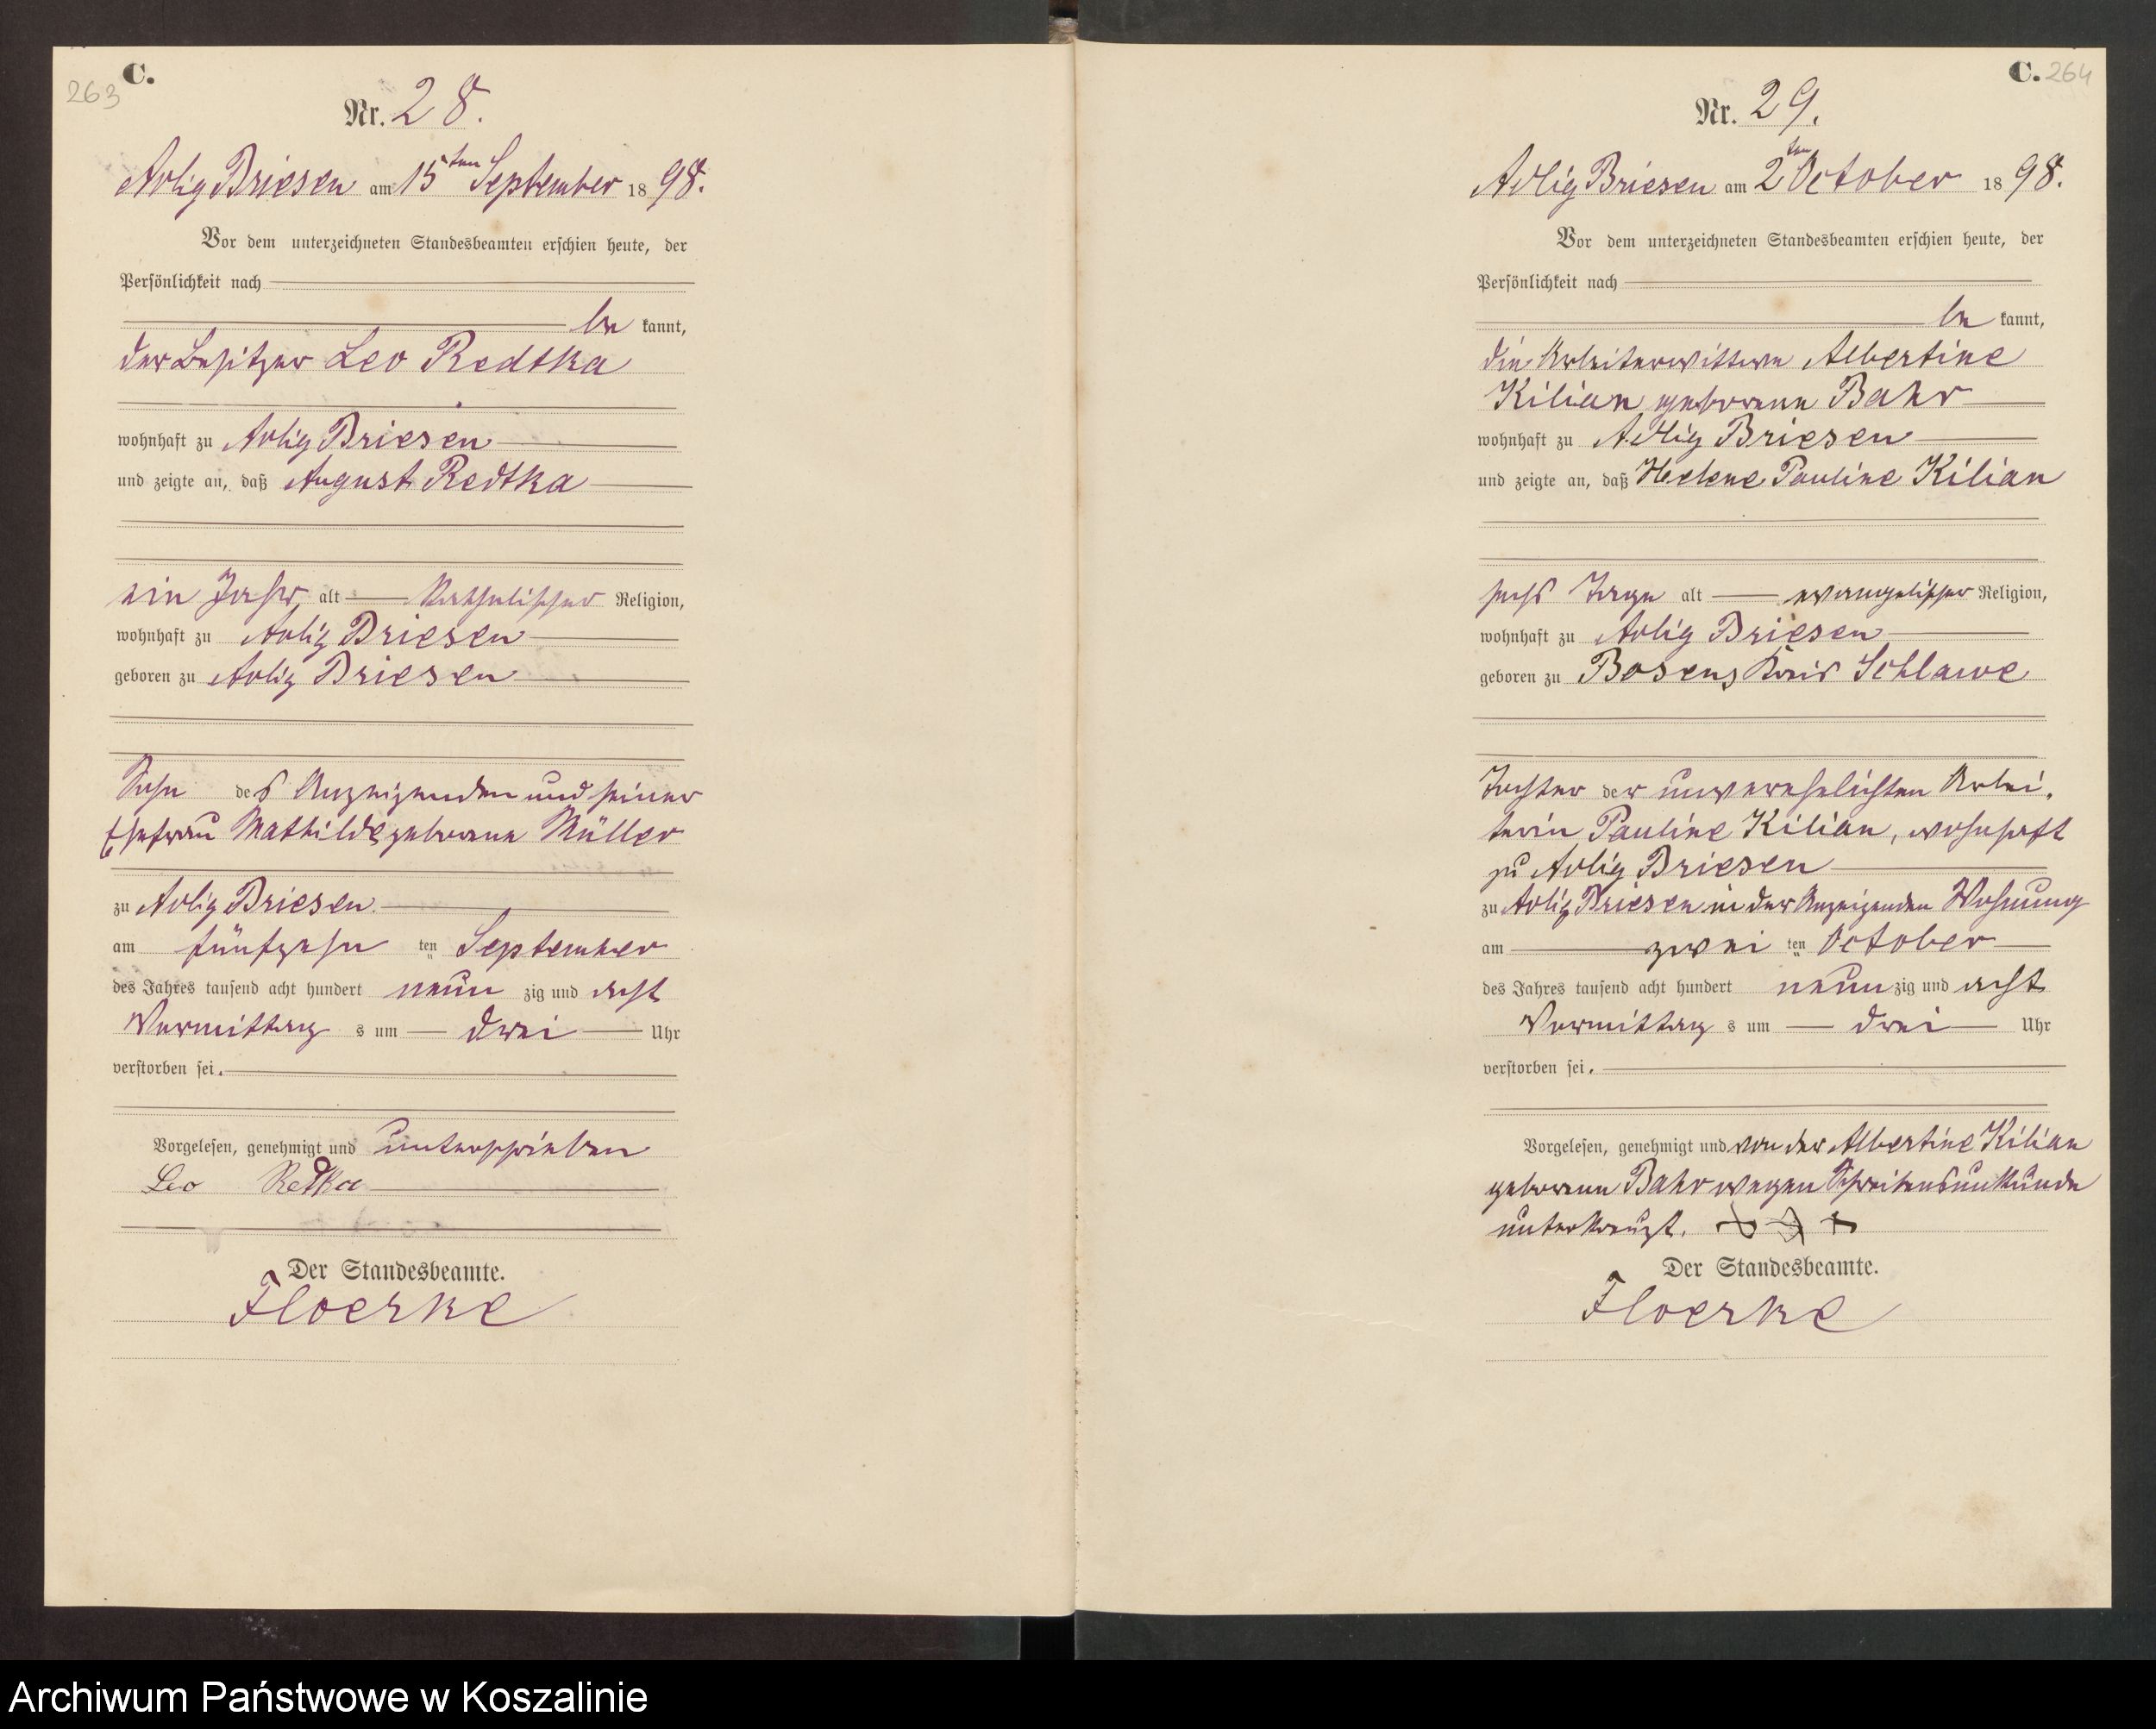 263 C.
Nr. 28.
Adlig Briesen am 15ten September 1898.
Vor dem unterzeichneten Standesbeamten erschien heute, der
Persönlichkeit nach
be kannt,
der Besitzer Leo Redtka
wohnhaft zu Adlig Briesen
und zeigte an, daß August Redtka
ein Jahr, alt katholischer Religion,
wohnhaft zu Adlig Briesen
geboren zu Adlig Briesen
Sohn des Anzeigenden und seiner
Ehefrau Mathilde geborene Müller
zu Adlig Briesen
am fünfzehn ten September
des Jahres tausend acht hundert neun zig und acht
Vormittag s um drei Uhr
verstorben sei.
Vorgelesen, genehmigt und unterschrieben
Leo Redtka
Der Standesbeamte.
Floerke
C. 264
Nr. 29.
Adlig Briesen am 2ten October 1898.
Vor dem unterzeichneten Standesbeamten erschien heute, der
Persönlichkeit nach
be kannt,
die Arbeiterwittwe Albertine
Kilian geborene Bahr
wohnhaft zu Adlig Briesen
und zeigte an, daß Helene Pauline Kilian
sechs Tage alt evangelischer Religion,
wohnhaft zu Adlig Briesen
geboren zu Bosens Kreis Schlawe
Tochter der unverehelichten Arbei-
terin Pauline Kilian, wohnhaft
zu Adlig Briesen
zu Adlig Briesen in der Anzeigenden Wohnung
am zwei ten October
des Jahres tausend acht hundert neun zig und acht
Vormittag s um drei Uhr
verstorben sei.
Vorgelesen, genehmigt und von der Albertine Kilian
geborene Bahr wegen Schreibensunkunde
unterkreuzt. + + +
Der Standesbeamte.
Floerke
Archiwum Państwowe w Koszalinie